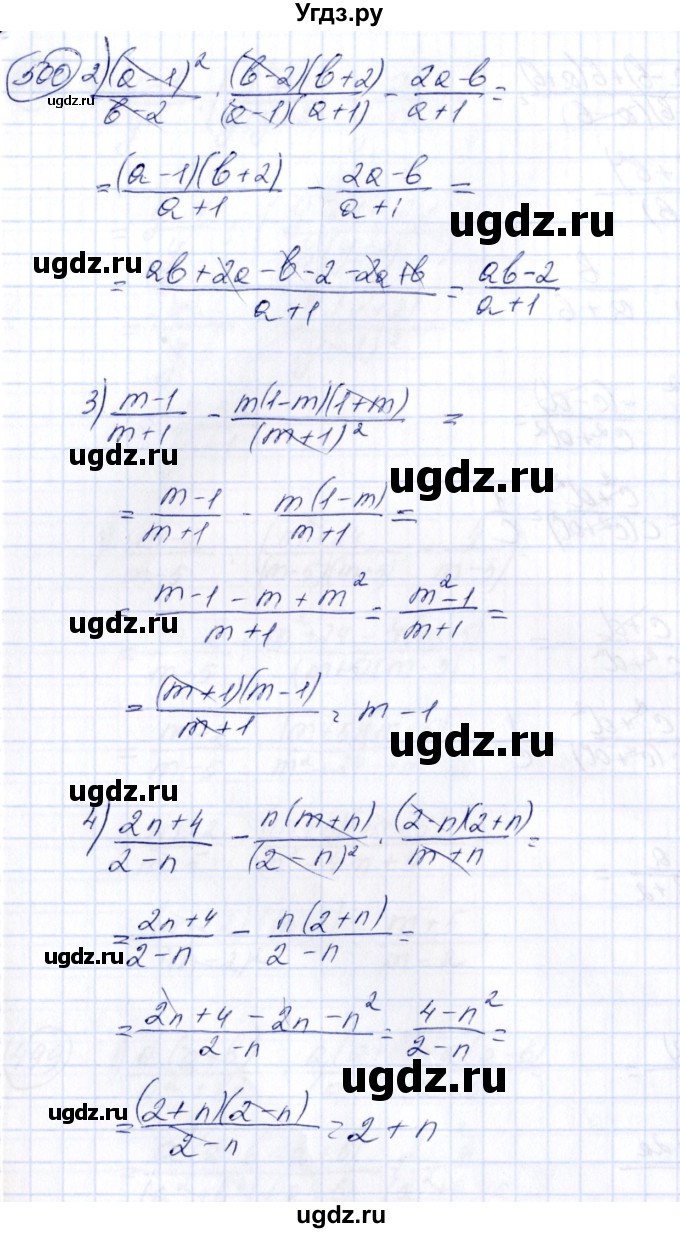 Угдз.ру
500 2) (a-1)²/(b-2) · (b-2)(b+2)/((a-1)(a+1)) - (2a-b)/(a+1) =
ugdz.ru
= (a-1)(b+2)/(a+1) - (2a-b)/(a+1) =
ugdz.ru
ugdz.ru
= (ab+2a-b-2-2a+b)/(a+1) = (ab-2)/(a+1)
3) (m-1)/(m+1) - m(1-m)(1+m)/(m+1)² =
ugdz.ru
ugdz.ru
= (m-1)/(m+1) - m(1-m)/(m+1) =
= (m-1-m+m²)/(m+1) = (m²-1)/(m+1) =
ugdz.ru
= (m+1)(m-1)/(m+1) = m-1
ugdz.ru
ugdz.ru
4) (2n+4)/(2-n) - n(m+n)/(2-n)² · (2-n)(2+n)/(m+n) =
= (2n+4)/(2-n) - n(2+n)/(2-n) =
ugdz.ru
= (2n+4-2n-n²)/(2-n) = (4-n²)/(2-n) =
ugdz.ru
ugdz.ru
= (2+n)(2-n)/(2-n) = 2+n
ugdz.ru